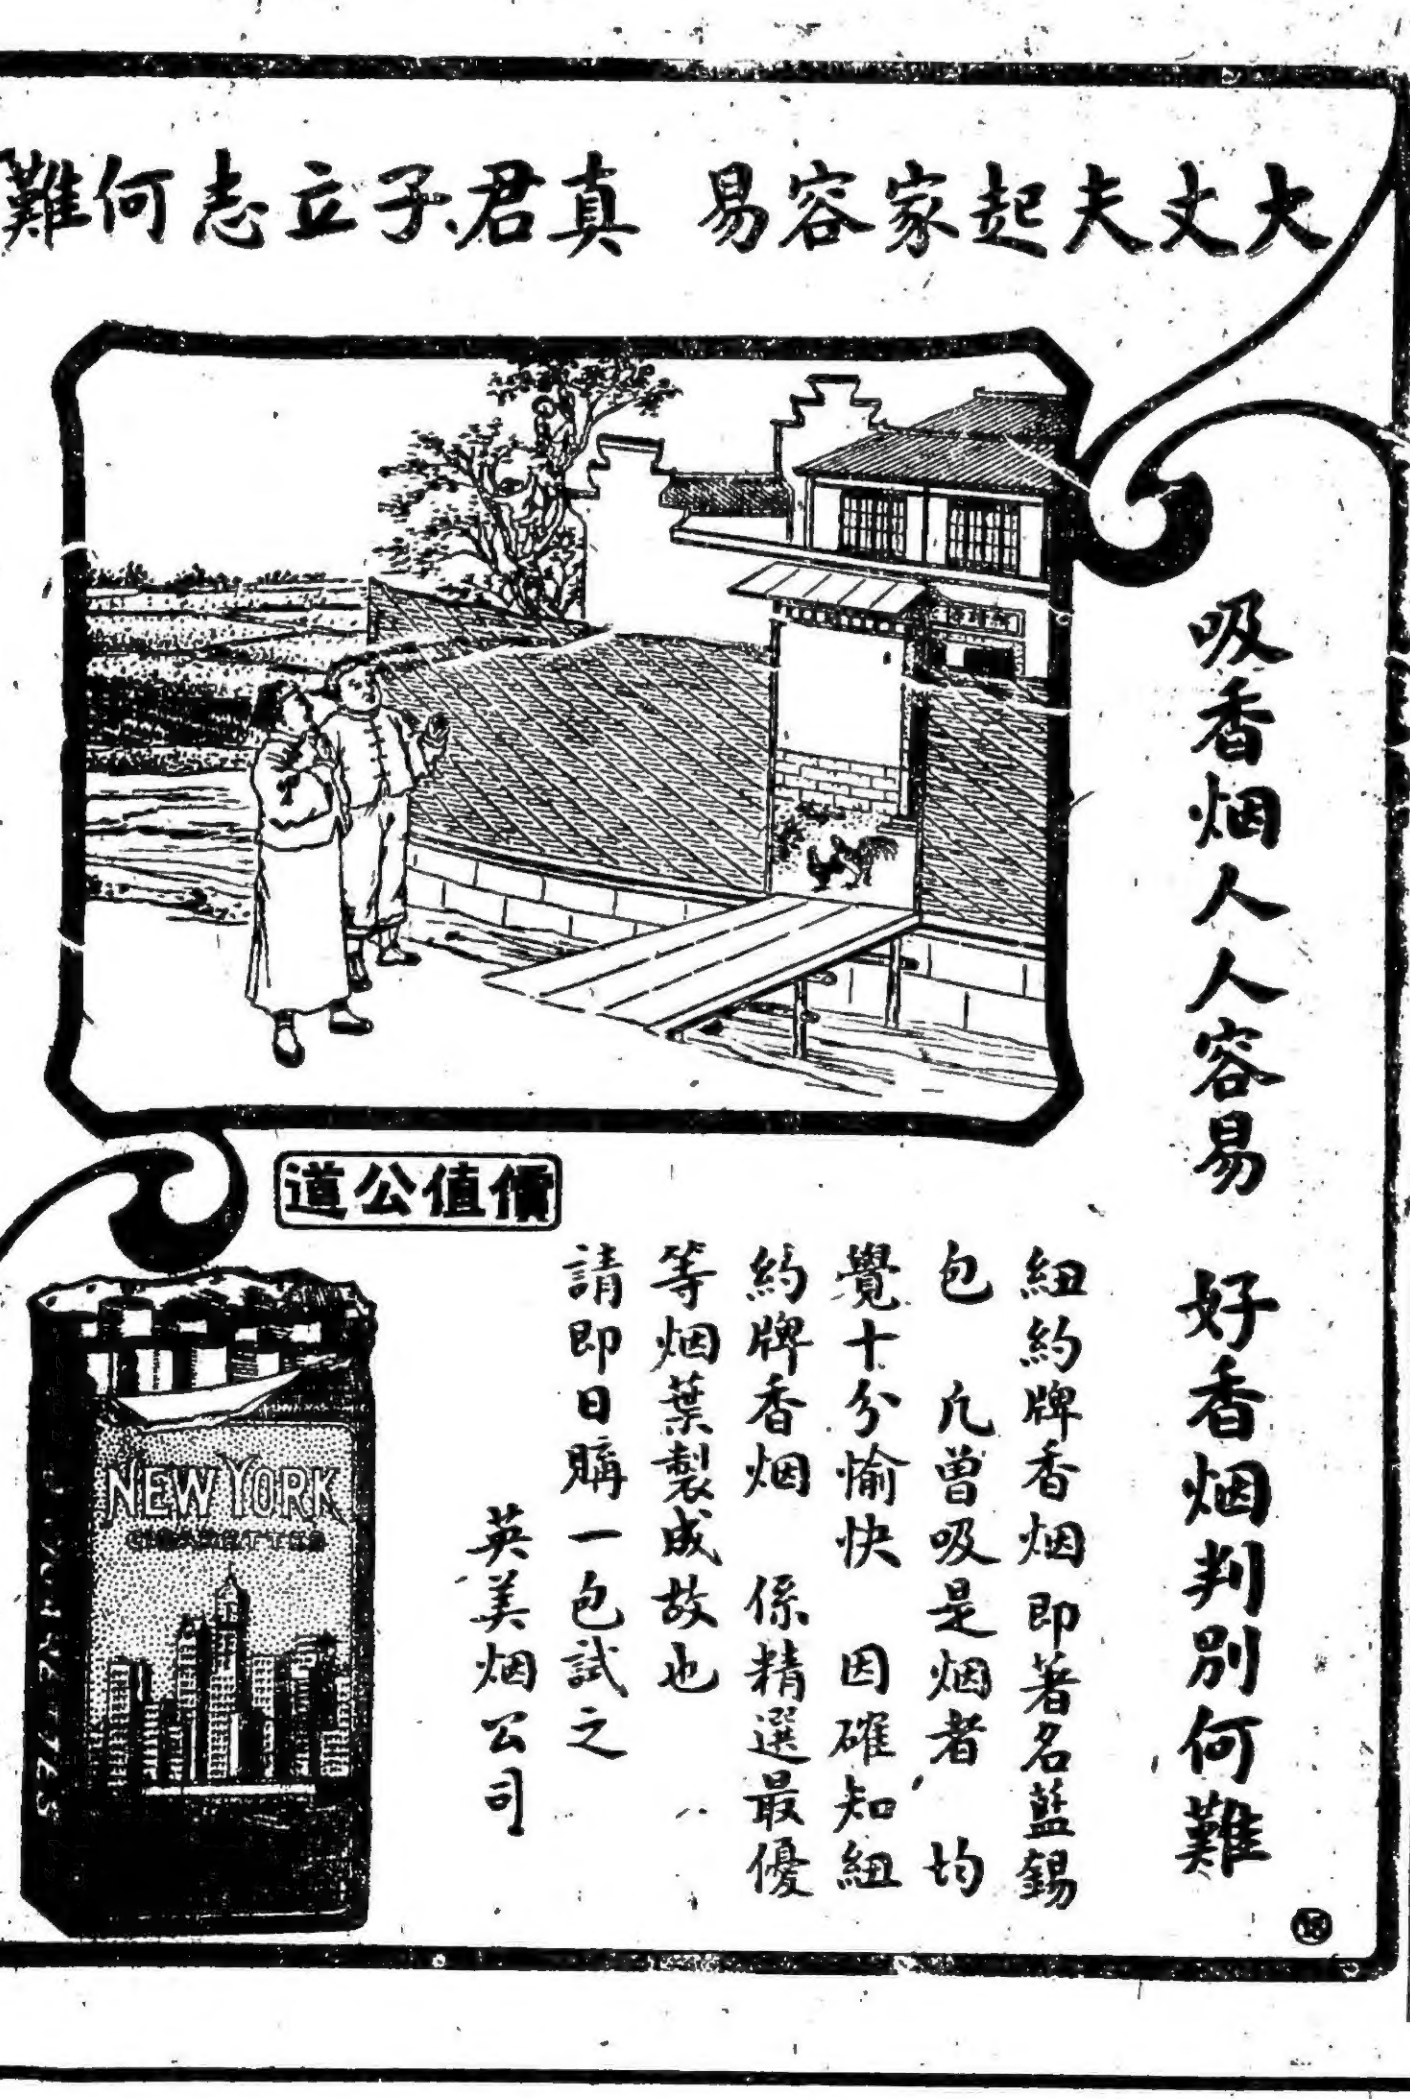 大丈夫起家容易 真君子立志何難
吸香烟人人容易 好香烟判别何難
紐約牌香烟即著名藍錫
包 凢曾吸是烟者 均
覺十分愉快 因確知紐
約牌香烟 係精選最優
等烟葉製成故也
請即日購一包試之
英美烟公司
價值公道
NEW YORK
CIGARETTES